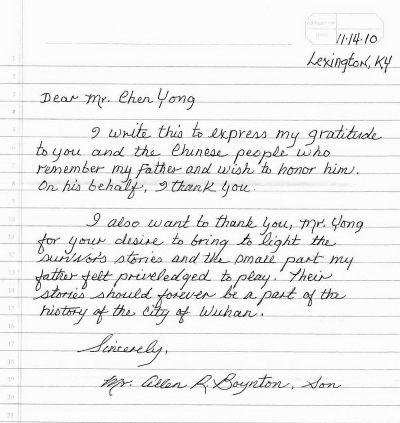 11·14·10
Lexington, KY
Dear Mr. Chen Yong
I write this to express my gratitude
to you and the Chinese people who
remember my father and wish to honor him.
On his behalf, I thank you.
I also want to thank you, Mr. Yong
for your desire to bring to light the
survivors stories and the small part my
father felt priveledged to play. Their
stories should forever be a part of the
history of the city of Wuhan.
Sincerely,
Mr. Allen R. Boynton, Son